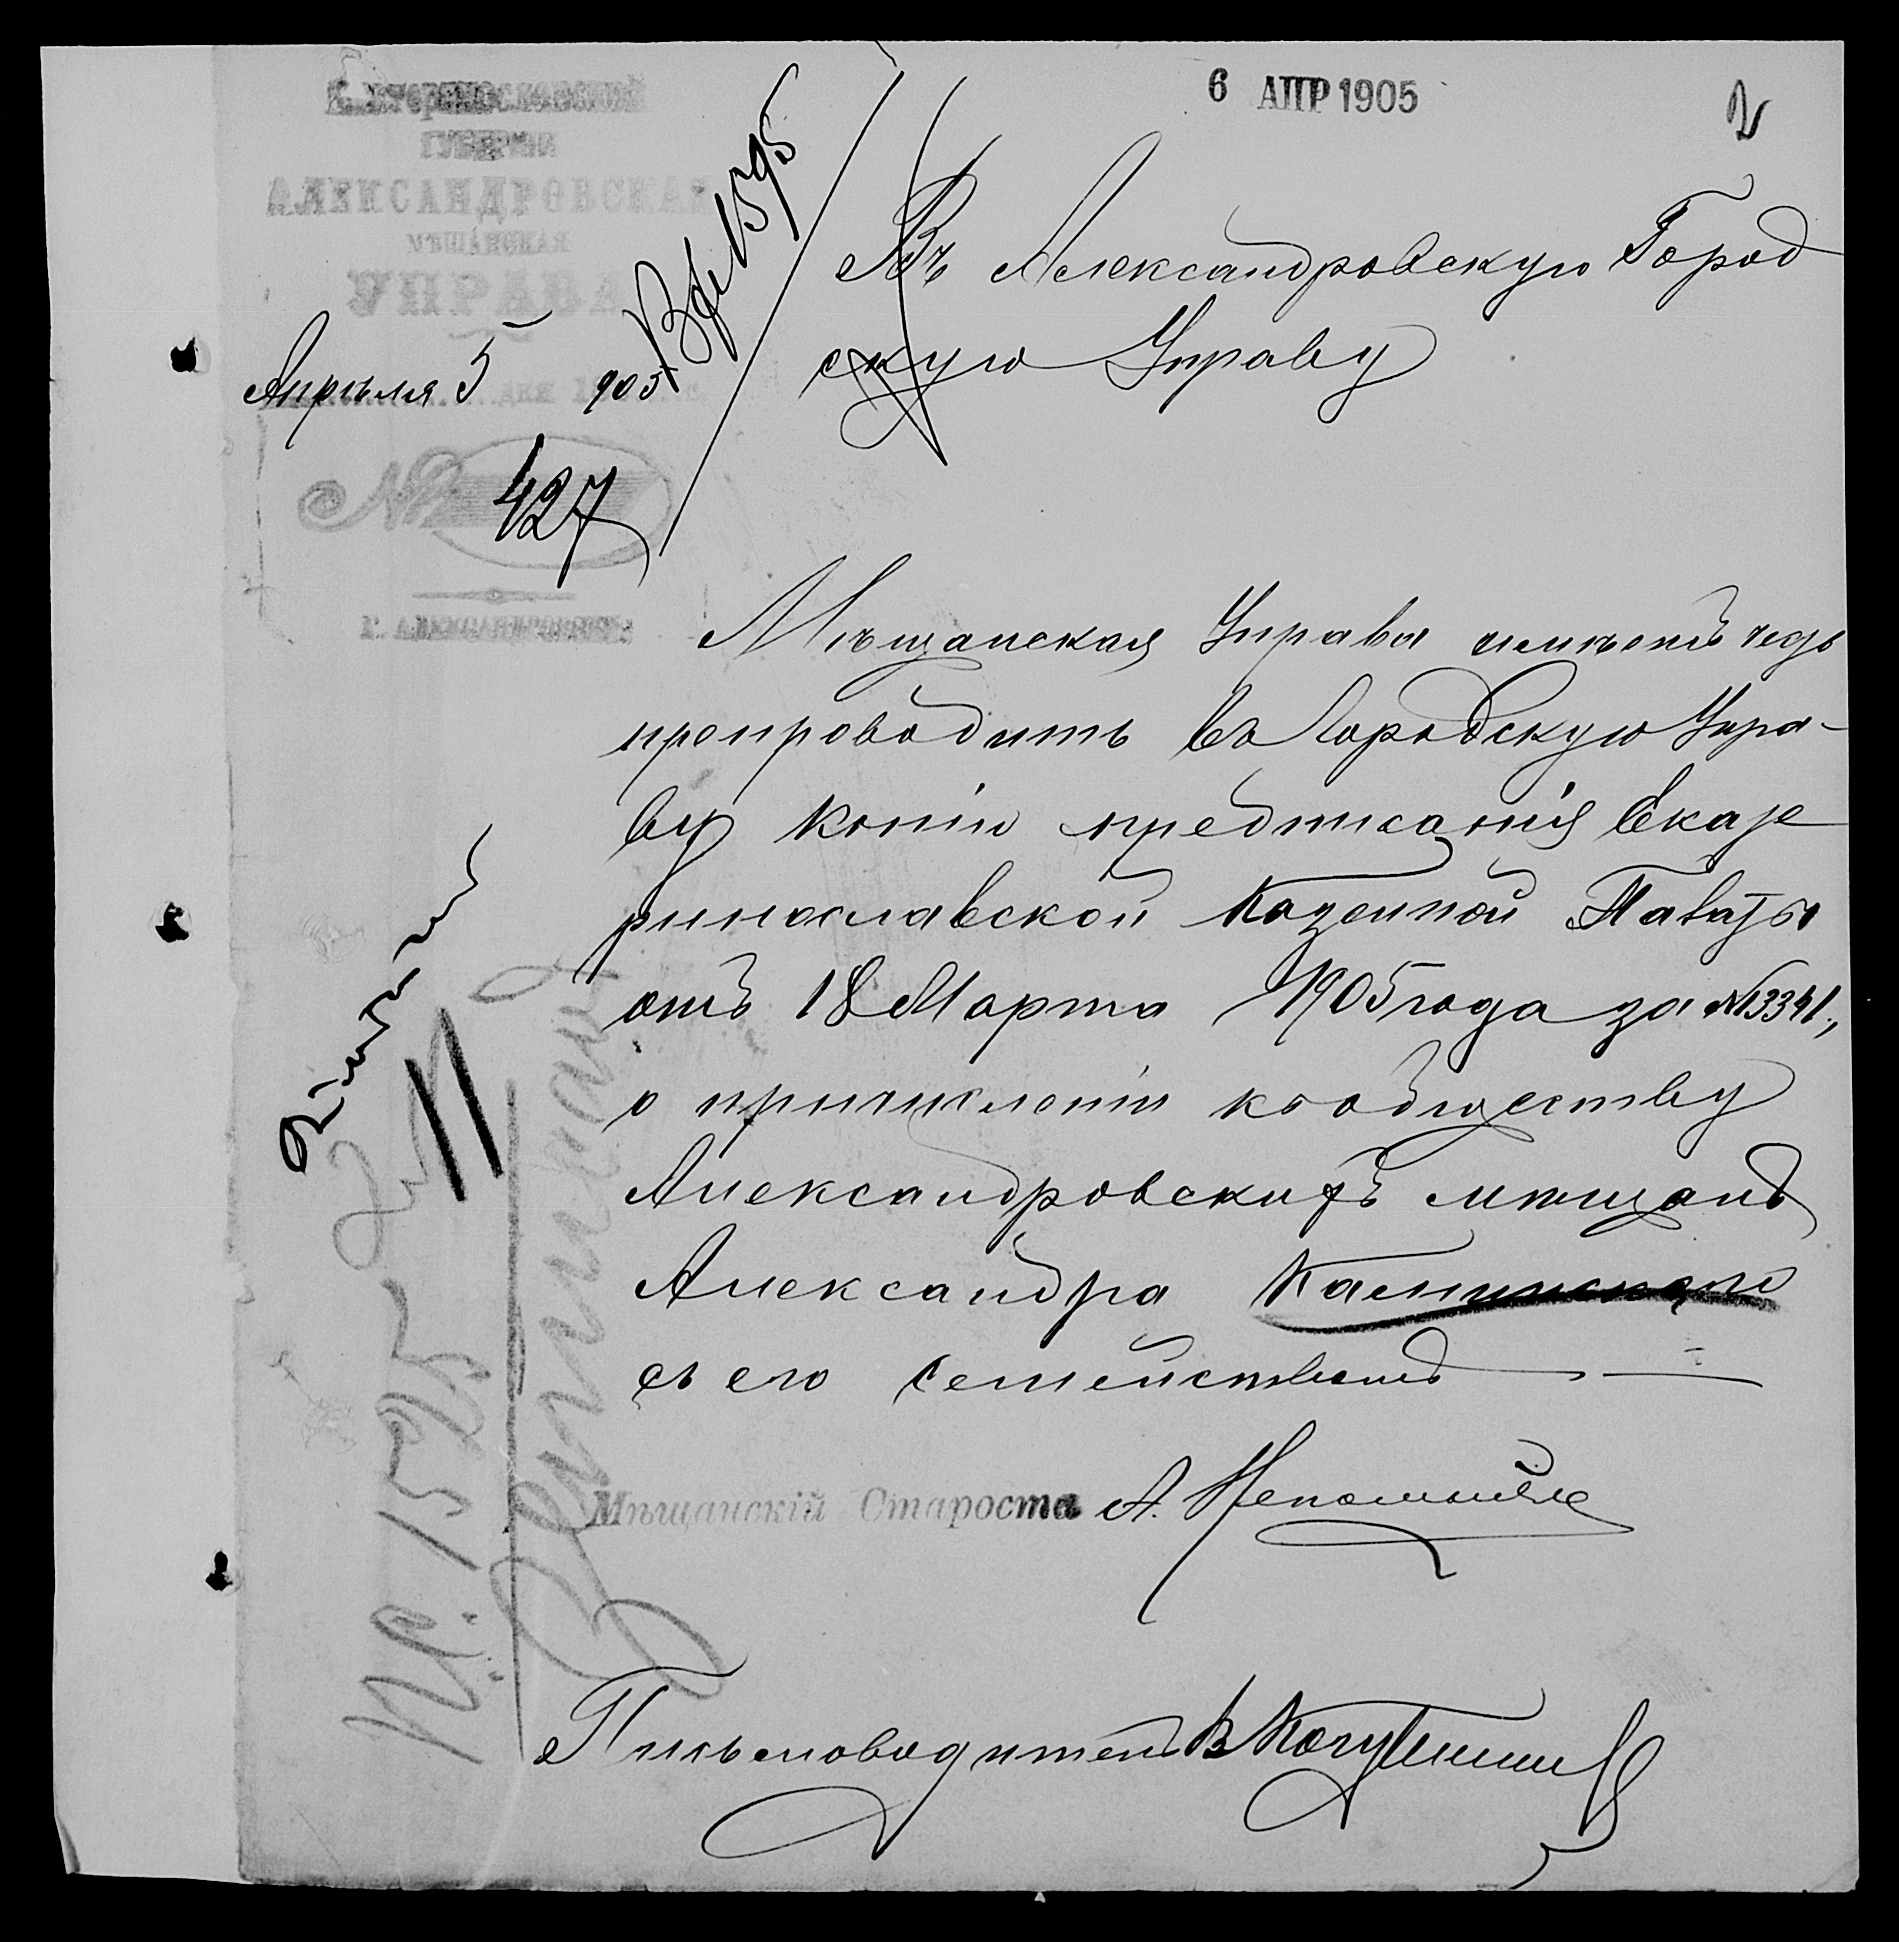 6 АПР 1905
2
Екатеринославской
ГУБЕРНИИ
АЛЕКСАНДРОВСКАЯ
МѢЩАНСКАЯ
УПРАВА
Апрѣля 5 дня 1905
№ 427
Г. АЛЕКСАНДРОВСКЪ
Вх 1595
Въ Александровскую Город
скую Управу
Мѣщанская Управа имѣетъ честь
препроводить въ Городскую Упра-
ву копію предписанія Екате
ринославской Казенной Палаты
отъ 18 Марта 1905 года за №13341,
о причисленіи къ обществу
Александровскихъ мѣщанъ
Александра Каминскаго
съ его семействомъ
Мѣщанскій Староста А.
Письмоводитель В